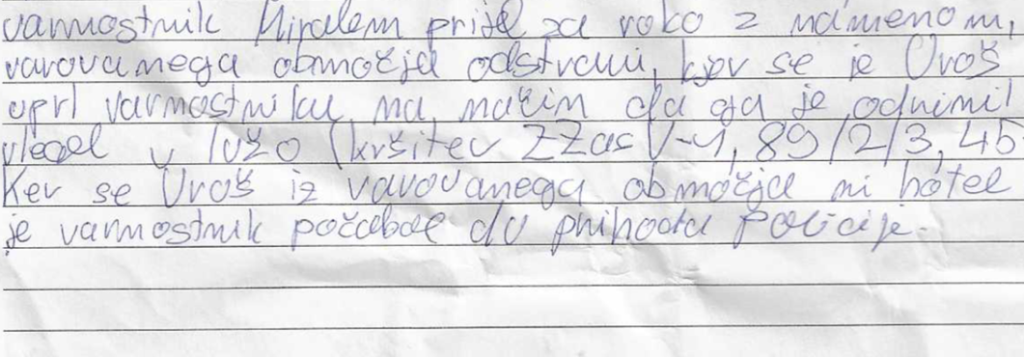 varnostnik Miralem prijel za roko z namenom,
varovanega območja odstrani, kjer se je Uroš
uprl varnostniku, na način da ga je odrinil
vlegel v lužo (kršitev ZZas V-1, 89/2/3, 45
Ker se Uroš iz varovanega območja ni hotel
je varnostnik počakal do prihoda Policije.